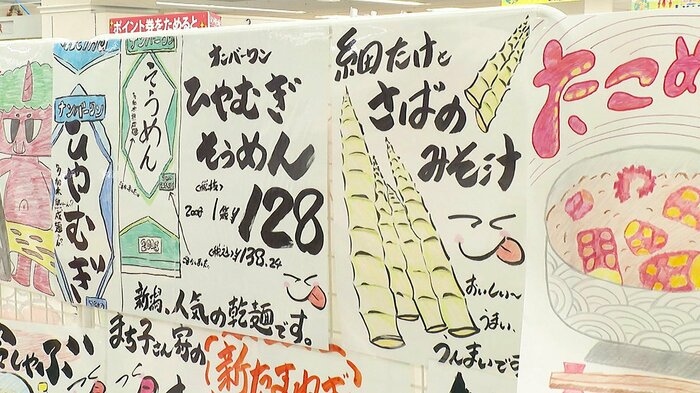 ポイント券をためると
ナンバーワン
ひやむぎ
ナンバーワン
そうめん
ナンバーワン
ひやむぎ
そうめん
(税抜)
200g 1袋¥128
(税込)¥138.24
新潟、人気の乾麺です。
細たけと
さばの
みそ汁
おいしい〜
うまい、
うんまいです
たこめ
しゃぶ
まち子さん家の
新たまねぎ